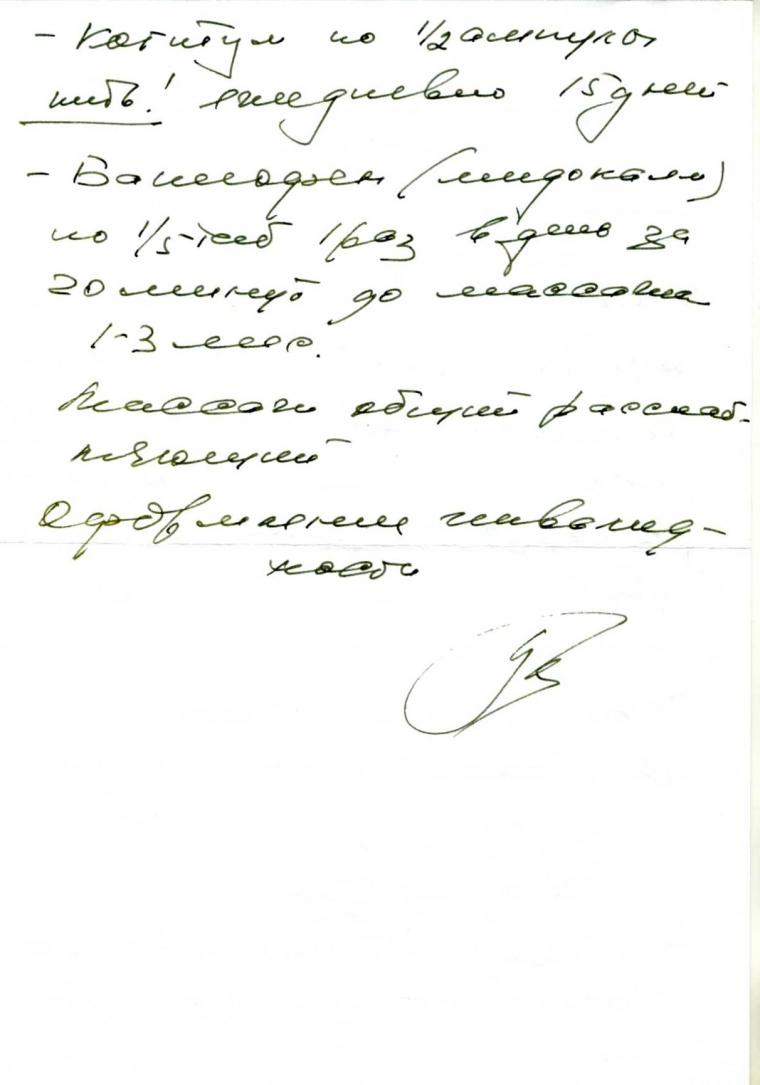 - Когитум по 1/2 ампулы
пить! ежедневно 15 дней
- Баклофен (мидокалм)
по 1/5 таб 1 раз в день за
20 минут до массажа
1-3 мес.
Массаж общий расслаб-
ляющий
Оформление инвалид-
ности